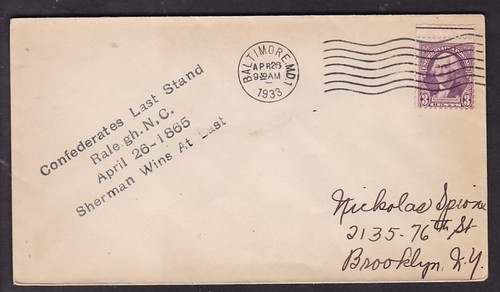 BALTIMORE, MD. 1
APR 26
9 AM
1933
3 3
Confederates Last Stand
Raleigh. N, C.
April 26-1865
Sherman Wins At Last
Nickolas Spione
2135-76th St
Brooklyn, N.Y.